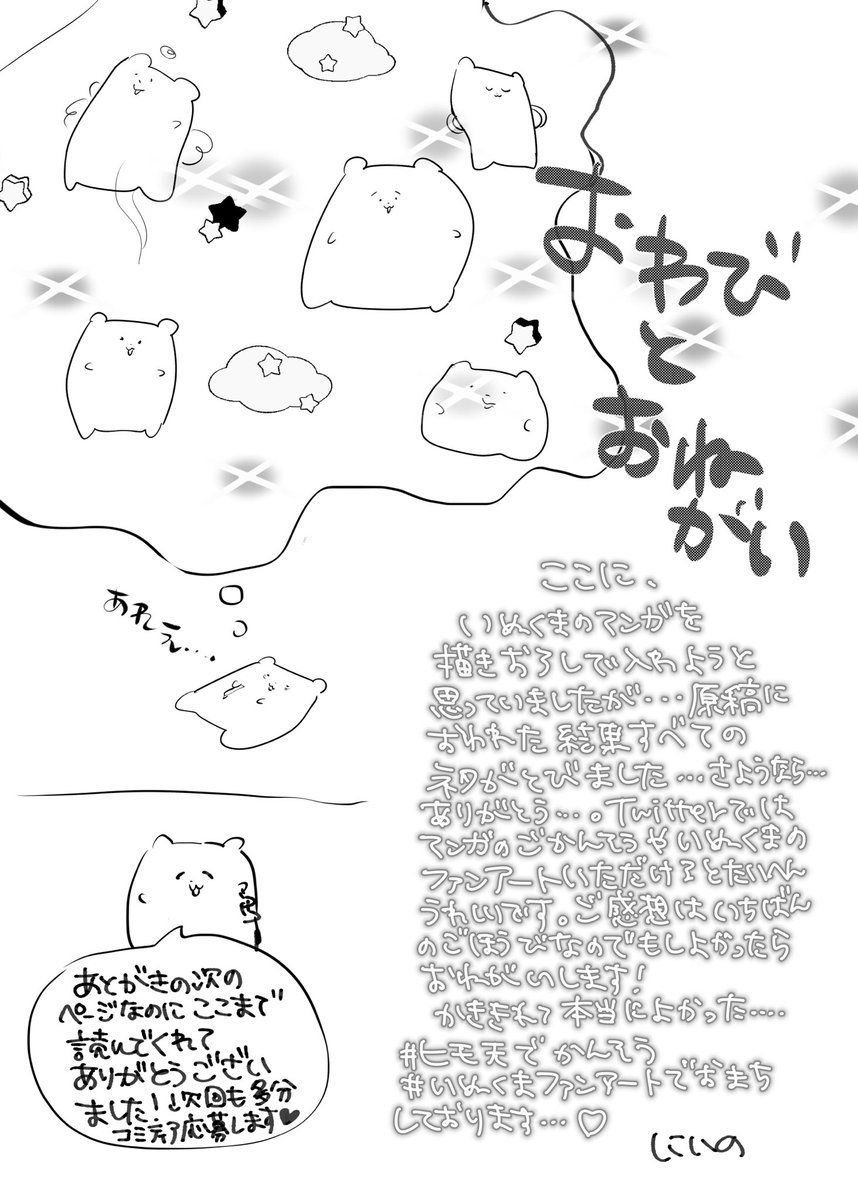 おわび
と
おねがい
ここに、
いぬくまのマンガを
描きおろしで入れようと
思っていましたが・・・原稿に
おわれた結果すべての
ネタがとびました…さようなら…
ありがとう…。Twitterでは
マンガのごかんそうやいぬくまの
ファンアートいただけるとたいへん
うれしいです。ご感想はいちばん
のごほうびなのでもしよかったら
おねがいします!
かききれて本当によかった・・・・
#ヒモ天でかんそう
#いぬくまファンアートでおまち
しております…♡
にいの
あれえ・・・・
あとがきの次の
ページなのにここまで
読んでくれて
ありがとうござい
ました!次回も多分
コミティア応募します♥